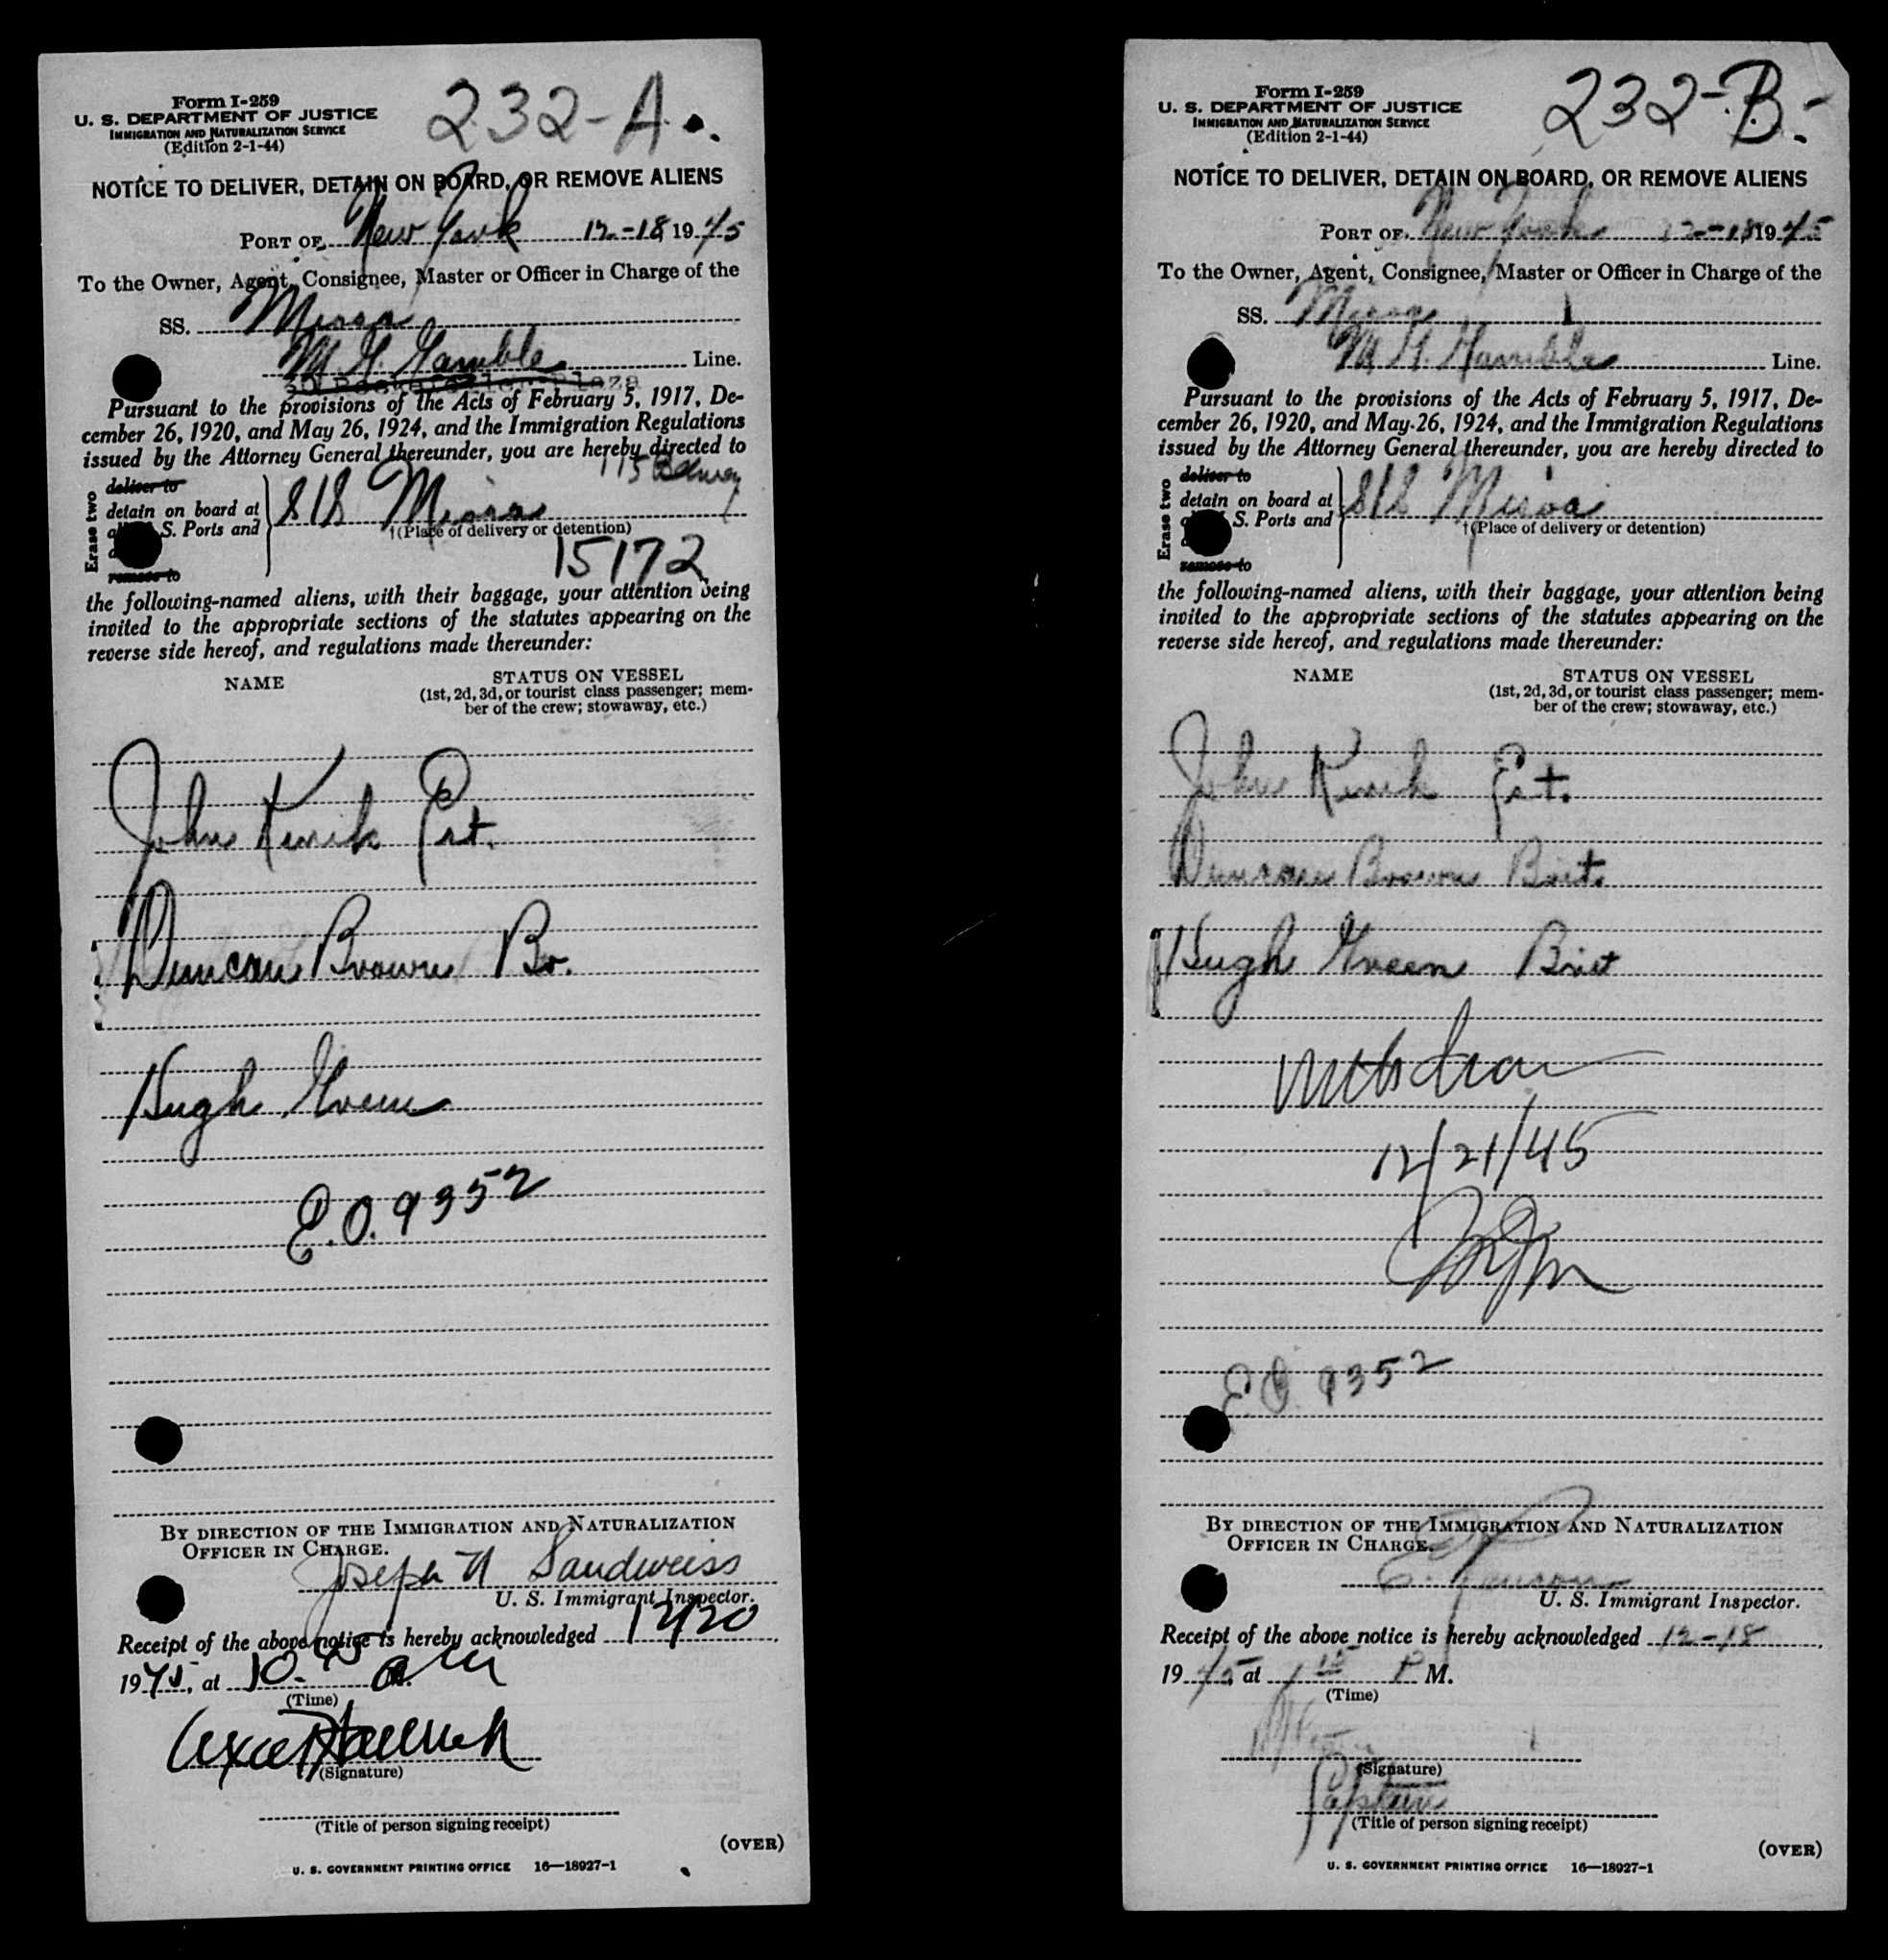 Form I-259
U. S. DEPARTMENT OF JUSTICE
IMMIGRATION AND NATURALIZATION SERVICE
(Edition 2-1-44)
232-A.
NOTICE TO DELIVER, DETAIN ON BOARD, OR REMOVE ALIENS
PORT OF New York 12-18, 1945
To the Owner, Agent, Consignee, Master or Officer in Charge of the
SS.
M. G. Gamble Line.
30 Rockefeller Plaza
Pursuant to the provisions of the Acts of February 5, 1917, De-
cember 26, 1920, and May 26, 1924, and the Immigration Regulations
issued by the Attorney General thereunder, you are hereby directed to
115 Bdway
Erase two
deliver to
detain on board at
S. Ports and
remove to
S/S
†(Place of delivery or detention)
15172
the following-named aliens, with their baggage, your attention being
invited to the appropriate sections of the statutes appearing on the
reverse side hereof, and regulations made thereunder:
NAME STATUS ON VESSEL
(1st, 2d, 3d, or tourist class passenger; mem-
ber of the crew; stowaway, etc.)
John
Duncan Brown Br.
Hugh Green
E.O. 9352
BY DIRECTION OF THE IMMIGRATION AND NATURALIZATION
OFFICER IN CHARGE.
Joseph H Sandweiss
U. S. Immigrant Inspector.
Receipt of the above notice is hereby acknowledged 12/20
1945, at 10.45 am
(Time)
(Signature)
(Title of person signing receipt)
(OVER)
U. S. GOVERNMENT PRINTING OFFICE 16—18927-1
Form I-259
U. S. DEPARTMENT OF JUSTICE
IMMIGRATION AND NATURALIZATION SERVICE
(Edition 2-1-44)
232-B.-
NOTICE TO DELIVER, DETAIN ON BOARD, OR REMOVE ALIENS
PORT OF New York 12-18, 1945
To the Owner, Agent, Consignee, Master or Officer in Charge of the
SS.
M. G. Gamble Line.
Pursuant to the provisions of the Acts of February 5, 1917, De-
cember 26, 1920, and May 26, 1924, and the Immigration Regulations
issued by the Attorney General thereunder, you are hereby directed to
Erase two
deliver to
detain on board at
S. Ports and
remove to
S/S
†(Place of delivery or detention)
the following-named aliens, with their baggage, your attention being
invited to the appropriate sections of the statutes appearing on the
reverse side hereof, and regulations made thereunder:
NAME STATUS ON VESSEL
(1st, 2d, 3d, or tourist class passenger; mem-
ber of the crew; stowaway, etc.)
John
Duncan Brown Brit.
Hugh Green Brit
12/21/45
E.O. 9352
BY DIRECTION OF THE IMMIGRATION AND NATURALIZATION
OFFICER IN CHARGE.
U. S. Immigrant Inspector.
Receipt of the above notice is hereby acknowledged 12-18
1945, at 1 15 P M.
(Time)
(Signature)
Captain
(Title of person signing receipt)
(OVER)
U. S. GOVERNMENT PRINTING OFFICE 16—18927-1